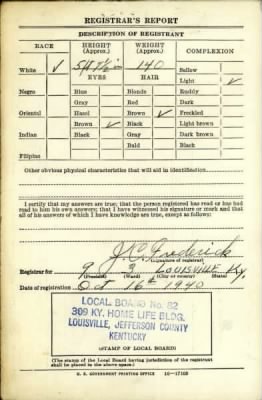 REGISTRAR'S REPORT
DESCRIPTION OF REGISTRANT
RACE HEIGHT (Approx.) WEIGHT (Approx.) COMPLEXION
White ✓ 5 ft 140 Sallow
EYES HAIR Light ✓
Negro Blue Blonde Ruddy
Gray Red Dark
Oriental Hazel Brown ✓ Freckled
Brown ✓ Black Light brown
Indian Black Gray Dark brown
Bald Black
Filipino
Other obvious physical characteristics that will aid in identification
I certify that my answers are true; that the person registered has read or has had
read to him his own answers; that I have witnessed his signature or mark and that
all of his answers of which I have knowledge are true, except as follows:
J.C. Frederick
(Signature of registrar)
Registrar for 9 LOUISVILLE Ky.
(Precinct) (Ward) (City or county) (State)
Date of registration Oct 16th 1940
LOCAL BOARD No. 82
309 KY. HOME LIFE BLDG.
LOUISVILLE, JEFFERSON COUNTY
KENTUCKY
(STAMP OF LOCAL BOARD)
(The stamp of the Local Board having jurisdiction of the registrant
shall be placed in the above space.)
U. S. GOVERNMENT PRINTING OFFICE 16—17105